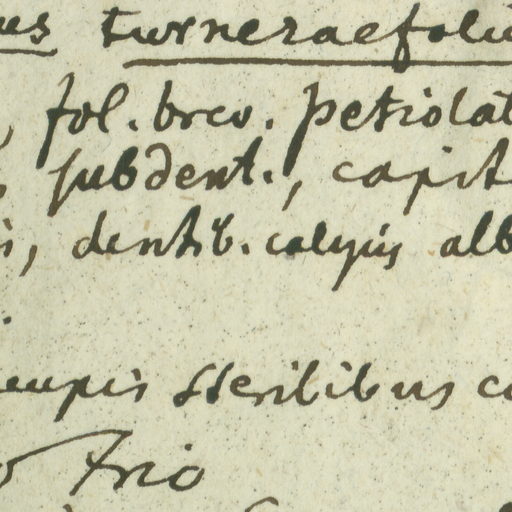 us turneraefoliu
, fol. brev. petiolat
, subdent., capit
i, dentib. calycis alb
.
cupis sterilibus c
Frio